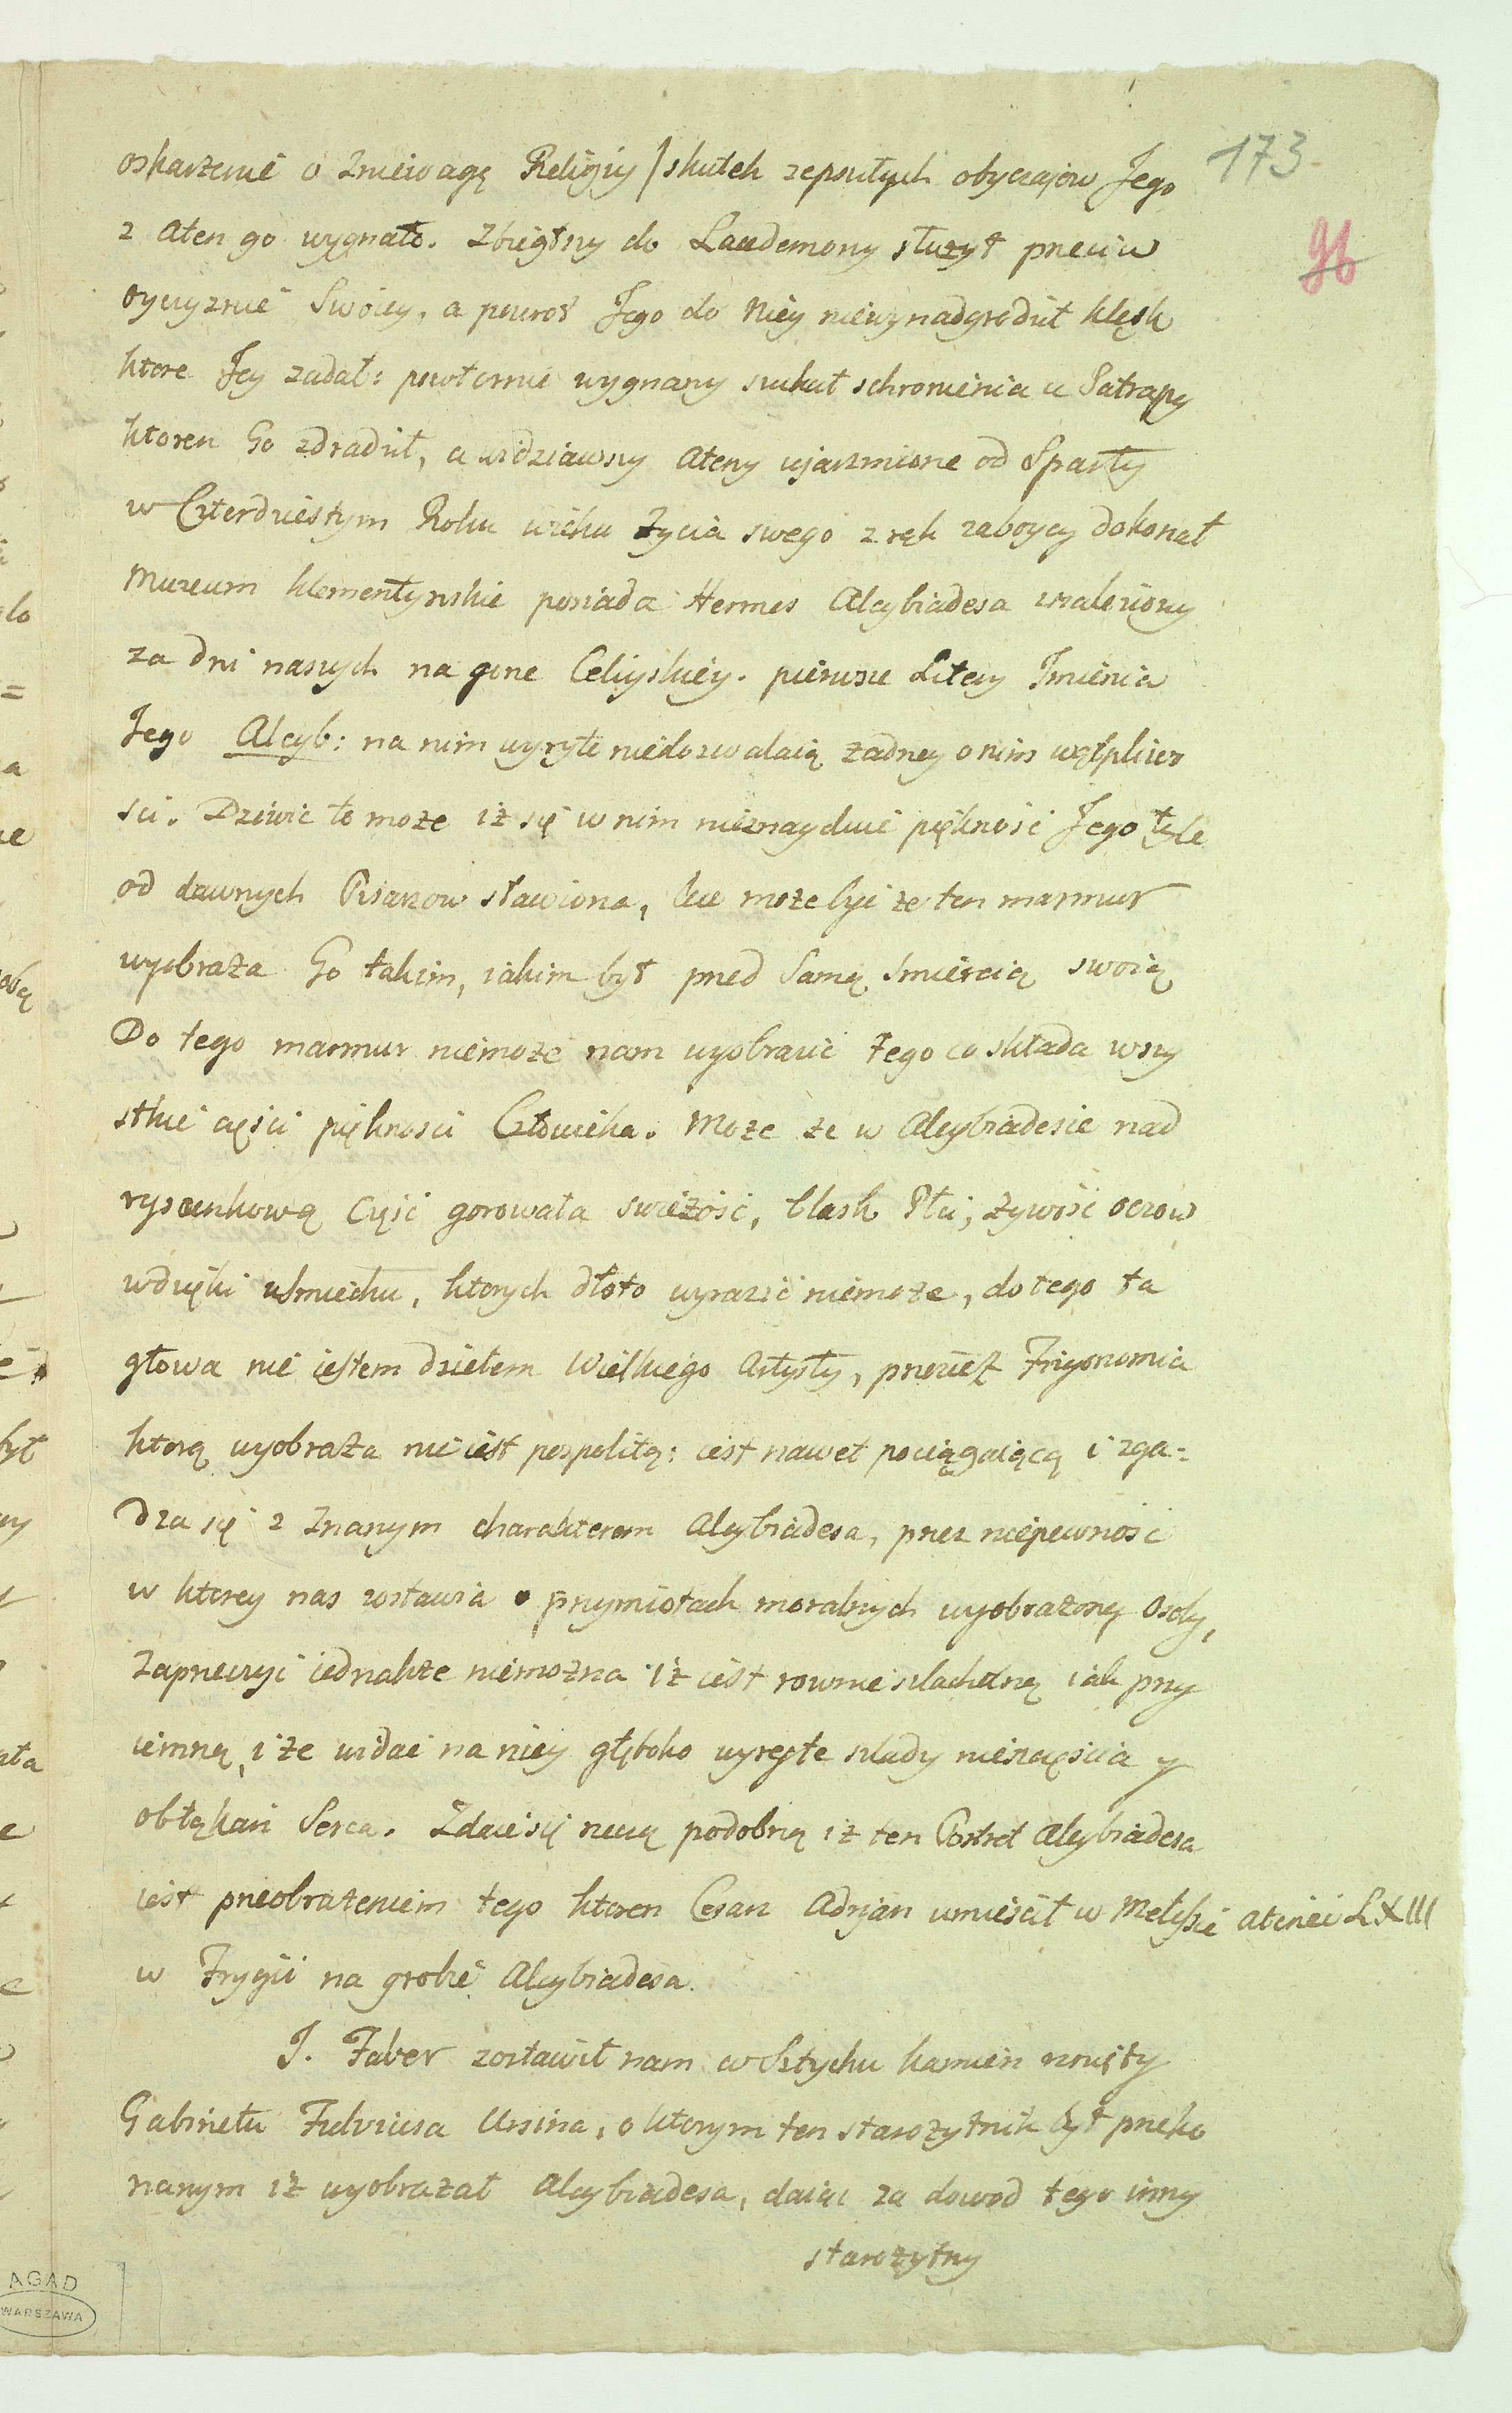 173
96
oskarzenie o Zniewagę Religiy / skutek zepsutych obyczajow Jego
z Aten go wygnało. Zbiegłszy do Lacedemony służył przeciw
oyczyznie Swoiey, a powrot Jego do Niey niewynadgrodził klęsk
ktore Jey zadał: powtornie wygnany szukał schronienia u Satrapy
ktoren Go zdradził, a widziawszy Ateny ujarzmione od Sparty
w Czterdziestym Roku wieku Życia swego z rąk zaboycy dokonał
Muzeum klementynskie posiada Hermes Alcybiadesa znaleziony
za dni naszych na gorze Celiyskiey. pierwsze Litery Imienia
Jego Alcyb: na nim wyryte niedozwalaią żadney o nim wątpliwo
sci. Dziwic to może iż się w nim nieznayduie piękność Jego tyle
od dawnych Pisarzow sławiona, lecz może być że ten marmur
wyobraża Go takim, iakim był przed Samą Smiercią swoią
Do tego marmur niemoże nam wyobrazić tego co składa wszy
stkie części piękności Człowieka. Może że w Alcybiadesie nad
rysunkową część gorowała swieżość, blask Płci, żywość oczow
wdzięki usmiechu, ktorych dłoto wyrazić niemoże, do tego ta
głowa nie iestem dziełem Wielkiego Artysty, przecież Fizyonomia
ktorą wyobraża nie iest pospolitą: iest nawet pociągaiącą i zga=
dza się z Znanym charakterem Alcybiadesa, przez niepewność
w ktorey nas zostawia o przymiotach moralnych wyobrażoney Osoby,
Zaprzeczyć iednakże niemożna iż iest rownie szlachetną iak przy
iemną, i że widać na niey głęboko wyryte szlady nieszczęścia y
obłąkań Serca. Zdaie się rzeczą podobną iż ten Portret Alcybiadesa
iest przeobrażeniem tego ktoren Cesarz Adrjan umieścił w Melissie Atenei L XIII
w Frygii na grobie Alcybiadesa.
J. Faber zostawił nam w Sztychu kamień rznięty
Gabinetu Fulviusa Ursina, o ktorym ten starożytnik był przeko
nanym iż wyobrażał Alcybiadesa, daiąc za dowod tego inny
starożytny
AGAD
WARSZAWA